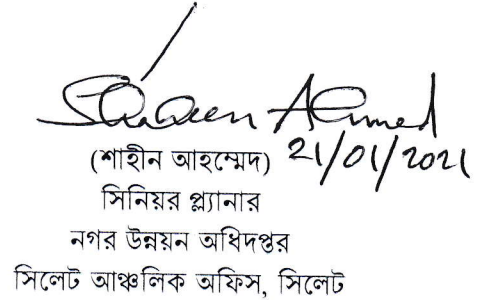 Shaheen Ahmed
21/01/2021
(শাহীন আহম্মেদ)
সিনিয়র প্ল্যানার
নগর উন্নয়ন অধিদপ্তর
সিলেট আঞ্চলিক অফিস, সিলেট